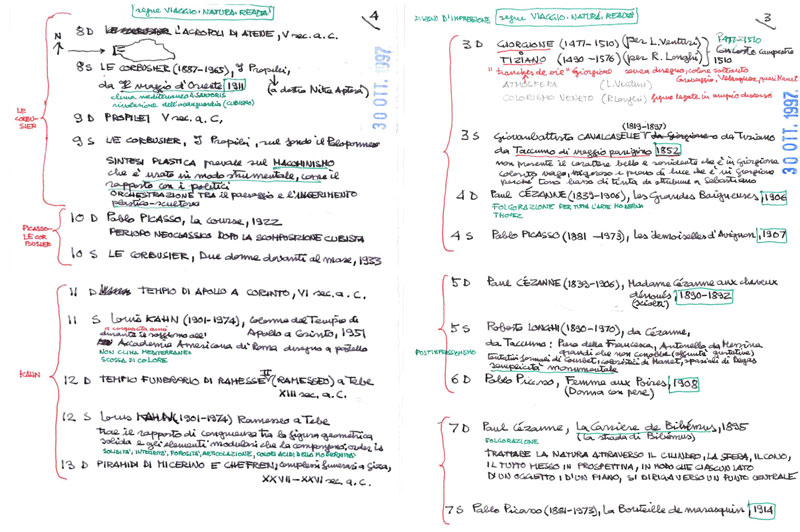 segue VIAGGIO. NATURA. READY
4
30 OTT. 1997
N
8 D L'ACROPOLI DI ATENE, V sec. a. C.
8 S LE CORBUSIER (1887-1965), I Propilei,
da Il viaggio d'Oriente 1911
clima mediterraneo &
rivelazione dell'avanguardia (CUBISMO)
LE CORBUSIER
9 D PROPILEI V sec. a. C.
9 S LE CORBUSIER, I Propilei, sul fondo il Peloponneso
SINTESI PLASTICA prevale sul MACCHINISMO
che è usato in modo strumentale, come il
rapporto con i politici
ORCHESTRAZIONE TRA il paesaggio e L'INSERIMENTO
plastico-scultoreo
PICASSO-LE CORBUSIER
10 D Pablo PICASSO, La Course, 1922
PERIODO NEOCLASSICO DOPO LA SCOMPOSIZIONE CUBISTA
10 S LE CORBUSIER, Due donne davanti al mare, 1933
KAHN
11 D TEMPIO DI APOLLO A CORINTO, VI sec. a. C.
11 S Louis KAHN (1901-1974), Colonne del Tempio di
Apollo a Corinto, 1951
a cinquanta anni
durante il soggiorno all'
Accademia Americana di Roma disegno a pastello
NON CLIMA MEDITERRANEO
SCOSSA DI COLORE
12 D TEMPIO FUNERARIO DI RAMESSE II (RAMESSEO) a Tebe
XIII sec. a. C.
12 S Louis KAHN (1901-1974) Ramesseo a Tebe
trae il rapporto di congruenza tra la figura geometrica
solida e gli elementi modulari che la compongono, order is
SOLIDITA', INTEGRITA', POROSITA', ARTICOLAZIONE, COLORI ACIDI DELLA MODERNITA'
13 D PIRAMIDI DI MICERINO E CHEFREN, complessi funerari a Giza,
XXVII-XXVI sec. a. C.
DISEGNO D'IMPRESSIONE segue VIAGGIO. NATURA. READY
3
30 OTT. 1997
3 D GIORGIONE (1477-1510) (per L. Venturi)
TIZIANO (1490-1576) (per R. Longhi)
P 1477-1510
Concerto campestre
1510
"tranches de vie" Giorgione senza disegno, colore soltanto
Caravaggio, Velasquez, quasi Manet
ATMOSFERA (L. Venturi)
COLORISMO VENETO (R. Longhi) figure legate in ampio discorso
(1819-1897)
3 S Giovanbattista CAVALCASELLE da Giorgione o da Tiziano
da Taccuino di viaggio parigino 1852
non parmente il carattere bello e sorridente che è in Giorgione
colorito vago, vigoroso e pieno di luce che è in Giorgione
perché tono basso di tinta da attribuire a Sebastiano
4 D Paul CÉZANNE (1839-1906), Les Grandes Baigneuses 1906
FOLGORAZIONE PER TUTTA L'ARTE MODERNA
4 S Pablo PICASSO (1881-1973), Les demoiselles d'Avignon, 1907
5 D Paul CÉZANNE (1839-1906), Madame Cézanne aux cheveux
dénoués, 1890-1892
(sciolti)
5 S Roberto LONGHI (1890-1970), da Cézanne,
da Taccuino: Piero della Francesca, Antonello da Messina
grandi che non conobbe (affinità qualitative)
POSTIMPRESSIONISMO
tentativi formali di Courbet, coloristici di Manet, spaziali di Degas
semplicità monumentale
6 D Pablo Picasso, Femme aux Poires, 1908
(Donna con pere)
7 D Paul Cézanne, La Carrière de Bibémus, 1895
FOLGORAZIONE (La strada di Bibémus)
TRATTARE LA NATURA ATTRAVERSO IL CILINDRO, LA SFERA, IL CONO,
IL TUTTO MESSO IN PROSPETTIVA, IN MODO CHE CIASCUN LATO
DI UN OGGETTO, DI UN PIANO, SI DIRIGA VERSO UN PUNTO CENTRALE
7 S Pablo Picasso (1881-1973), La Bouteille de marasquin, 1914